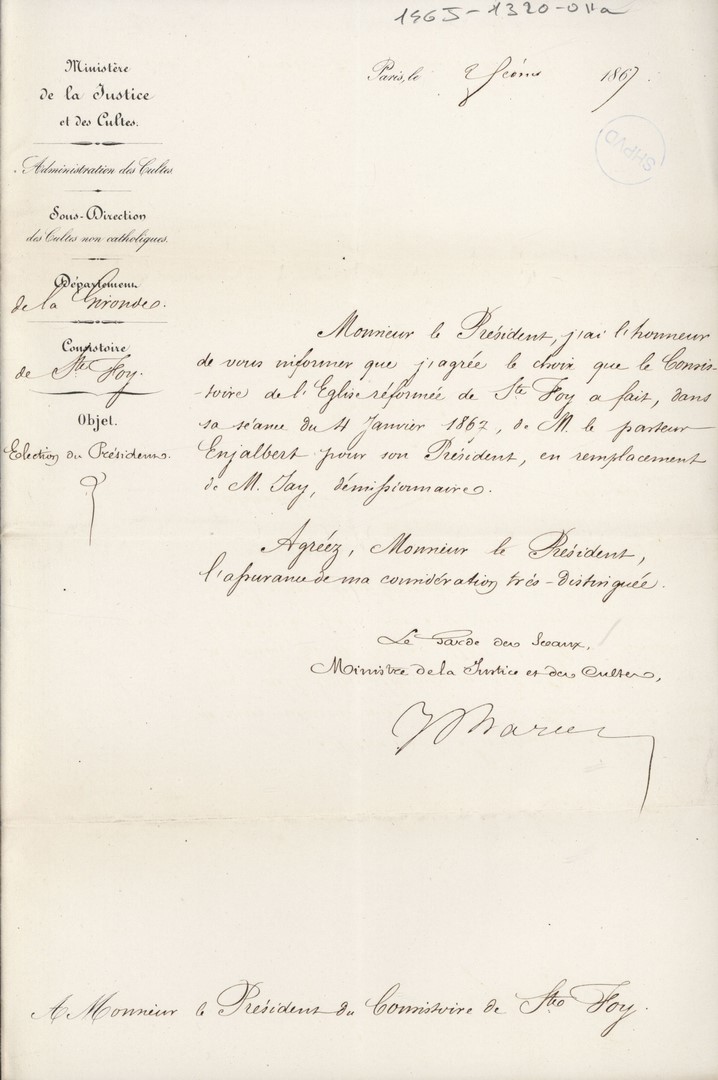 1965-1320-011a
Ministère
de la Justice
et des Cultes.
Administration des Cultes.
Sous-Direction
des Cultes non catholiques.
Département
de la Gironde.
Consistoire
de Ste Foy.
Objet.
Election du Président.
Paris, le 1867.
SHPVD
Monsieur le Président, j'ai l'honneur
de vous informer que j'agrée le choix que le Consis-
-toire de l'Eglise réformée de Ste Foy a fait, dans
sa séance du 4 Janvier 1867, de M. le pasteur
Enjalbert pour son Président, en remplacement
de M. Jay, démissionnaire.
Agréez, Monsieur le Président,
l'assurance de ma considération très-distinguée.
Le Garde des Sceaux,
Ministre de la Justice et des Cultes,
A Monsieur le Président du Consistoire de Ste Foy.